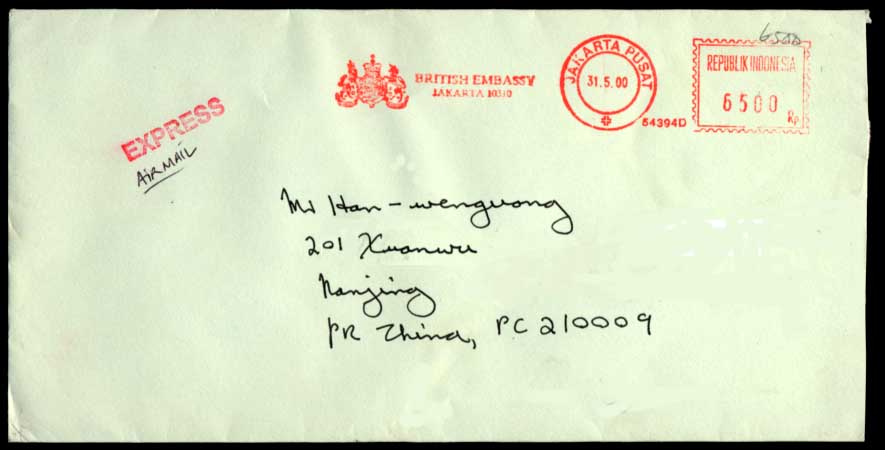 6500
BRITISH EMBASSY
JAKARTA 10310
JAKARTA PUSAT
31.5.00
54394D
REPUBLIK INDONESIA
6500
Rp
EXPRESS
AIR MAIL
Mr Han-wenguong
201 Xuanwu
Nanjing
PR China, PC 210009